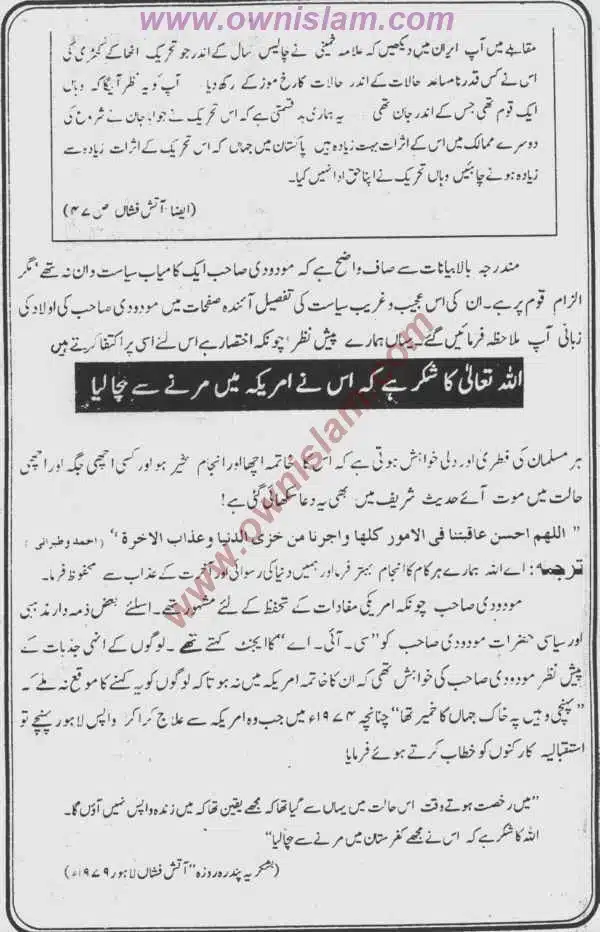 www.ownislam.com
مقابلے میں آپ ایران میں دیکھیں کہ علامہ خمینی نے چالیس سال کے اندر جو تحریک اٹھا کے کھڑی کی
اس نے کس قدر نامساعد حالات کے اندر حالات کا رخ موڑ کے رکھ دیا آپ کو یہ نظر آئیگا کہ وہاں
ایک قوم تھی جس کے اندر جان تھی یہ ہماری بد قسمتی ہے کہ اس تحریک نے جو ابا جان نے شروع کی
دوسرے ممالک میں اس کے اثرات بہت زیادہ ہیں پاکستان میں جہاں کہ اس تحریک کے اثرات زیادہ سے
زیادہ ہونے چاہئیں وہاں تحریک نے اپنا حق ادا نہیں کیا۔
(ایضا۔ آتش فشاں ص ۴۷)
مندرجہ بالا بیانات سے صاف واضح ہے کہ مودودی صاحب ایک کامیاب سیاست دان نہ تھے‘ مگر
الزام قوم پر ہے۔ ان کی اس عجیب و غریب سیاست کی تفصیل آئندہ صفحات میں مودودی صاحب کی اولاد کی
زبانی آپ ملاحظہ فرمائیں گئے۔ یہاں ہمارے پیش نظر‘ چونکہ اختصار ہے اس لئے اسی پر اکتفا کرتے ہیں
اللہ تعالیٰ کا شکر ہے کہ اس نے امریکہ میں مرنے سے بچا لیا
ہر مسلمان کی فطری اور دلی خواہش ہوتی ہے کہ اس کا خاتمہ اچھا اور انجام بخیر ہو اور کسی اچھی جگہ اور اچھی
حالت میں موت آئے حدیث شریف میں بھی یہ دعا سکھائی گئی ہے!
" اللهم احسن عاقبتنا فى الامور كلها واجرنا من خزى الدنيا وعذاب الاخرة " (احمد و طبرانی)
ترجمہ: اے اللہ ہمارے ہر کام کا انجام بہتر فرما اور ہمیں دنیا کی رسوائی اور آخرت کے عذاب سے محفوظ فرما۔
مودودی صاحب چونکہ امریکی مفادات کے تحفظ کے لئے مشہور تھے۔ اسلئے بعض ذمہ دار مذہبی
اور سیاسی حضرات مودودی صاحب کو "سی۔ آئی۔ اے" کا ایجنٹ کہتے تھے۔ لوگوں کے انہی جذبات کے
پیش نظر مودودی صاحب کی خواہش تھی کہ ان کا خاتمہ امریکہ میں نہ ہو تا کہ لوگوں کو یہ کہنے کا موقع نہ ملے کہ
"پہنچی وہیں پہ خاک جہاں کا خمیر تھا" چنانچہ ۱۹۷۴ء میں جب وہ امریکہ سے علاج کرا کر واپس لاہور پہنچے تو
استقبالیہ کارکنوں کو خطاب کرتے ہوئے فرمایا
"میں رخصت ہوتے وقت اس حالت میں یہاں سے گیا تھا کہ مجھے یقین تھا کہ میں زندہ واپس نہیں آؤں گا۔
اللہ کا شکر ہے کہ اس نے مجھے کفرستان میں مرنے سے بچا لیا"
(بشکریہ پندرہ روزہ "آتش فشاں لاہور ۱۹۷۹ء)
www.ownislam.com